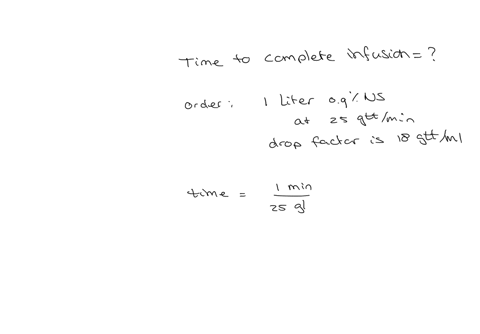 Time to complete infusion = ?
order: 1 Liter 0.9% NS
at 25 gtt/min
drop factor is 18 gtt/ml
time = 1 min
25 gl